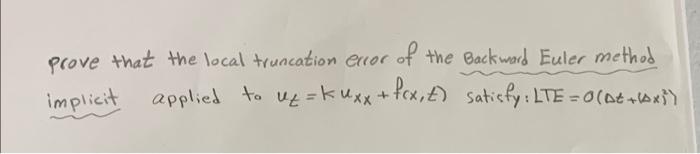 prove that the local truncation error of the Backward Euler method
implicit applied to u_t = k u_xx + f(x,t) satisfy: LTE = O(Δt + (Δx)²)